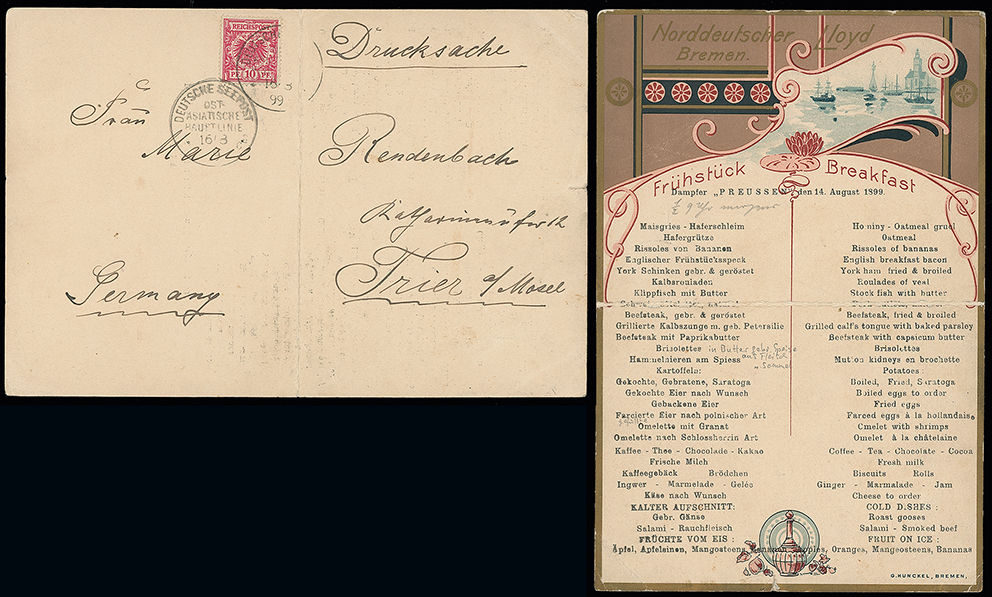 Drucksache
REICHSPOST
PF 10 PF
16 3
99
DEUTSCHE SEEPOST
OST-
ASIATISCHE
HAUPTLINIE
16 3
Frau
Marie Rendenbach
Katharinenufer 12
Trier a/Mosel
Germany
Norddeutscher Lloyd
Bremen.
Frühstück Breakfast
Dampfer „PREUSSEN" den 14. August 1899.
½ 9 Uhr morgens
Maisgries - Haferschleim Hominy - Oatmeal gruel
Hafergrütze Oatmeal
Rissoles von Bananen Rissoles of bananas
Englischer Frühstücksspeck English breakfast bacon
York Schinken gebr. & geröstet York ham fried & broiled
Kalbsrouladen Roulades of veal
Klippfisch mit Butter Stock fish with butter
Beefsteak, gebr. & geröstet Beefsteak, fried & broiled
Grillierte Kalbszunge m. geb. Petersilie Grilled calf's tongue with baked parsley
Beefsteak mit Paprikabutter Beefsteak with capsicum butter
Brisolettes in Butter gebr. Speise Brisolettes
aus Fleisch
u. Semmel
Hammelnieren am Spiess Mutton kidneys en brochette
Kartoffeln: Potatoes:
Gekochte, Gebratene, Saratoga Boiled, Fried, Saratoga
Gekochte Eier nach Wunsch Boiled eggs to order
Gebackene Eier Fried eggs
Farcierte Eier nach polnischer Art Farced eggs à la hollandaise
gefüllte
Omelette mit Granat Omelet with shrimps
Omelette nach Schlossherrin Art Omelet à la châtelaine
Kaffee - Thee - Chocolade - Kakao Coffee - Tea - Chocolate - Cocoa
Frische Milch Fresh milk
Kaffeegebäck Brödchen Biscuits Rolls
Ingwer - Marmelade - Gelée Ginger - Marmalade - Jam
Käse nach Wunsch Cheese to order
KALTER AUFSCHNITT: COLD DISHES:
Gebr. Gänse Roast gooses
Salami - Rauchfleisch Salami - Smoked beef
FRÜCHTE VOM EIS: FRUIT ON ICE:
Apfel, Apfelsinen, Mangosteens, Oranges, Mangosteens, Bananas
G. HUNCKEL, BREMEN.